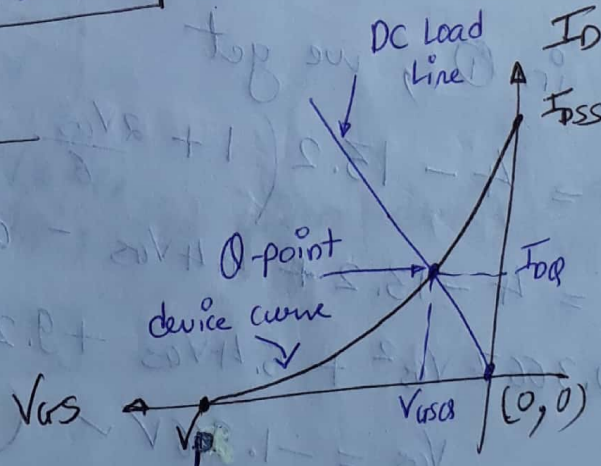 DC Load
Line
ID
IDSS
Q-point
IDQ
device curve
VGS
VP
VGSQ
(0,0)